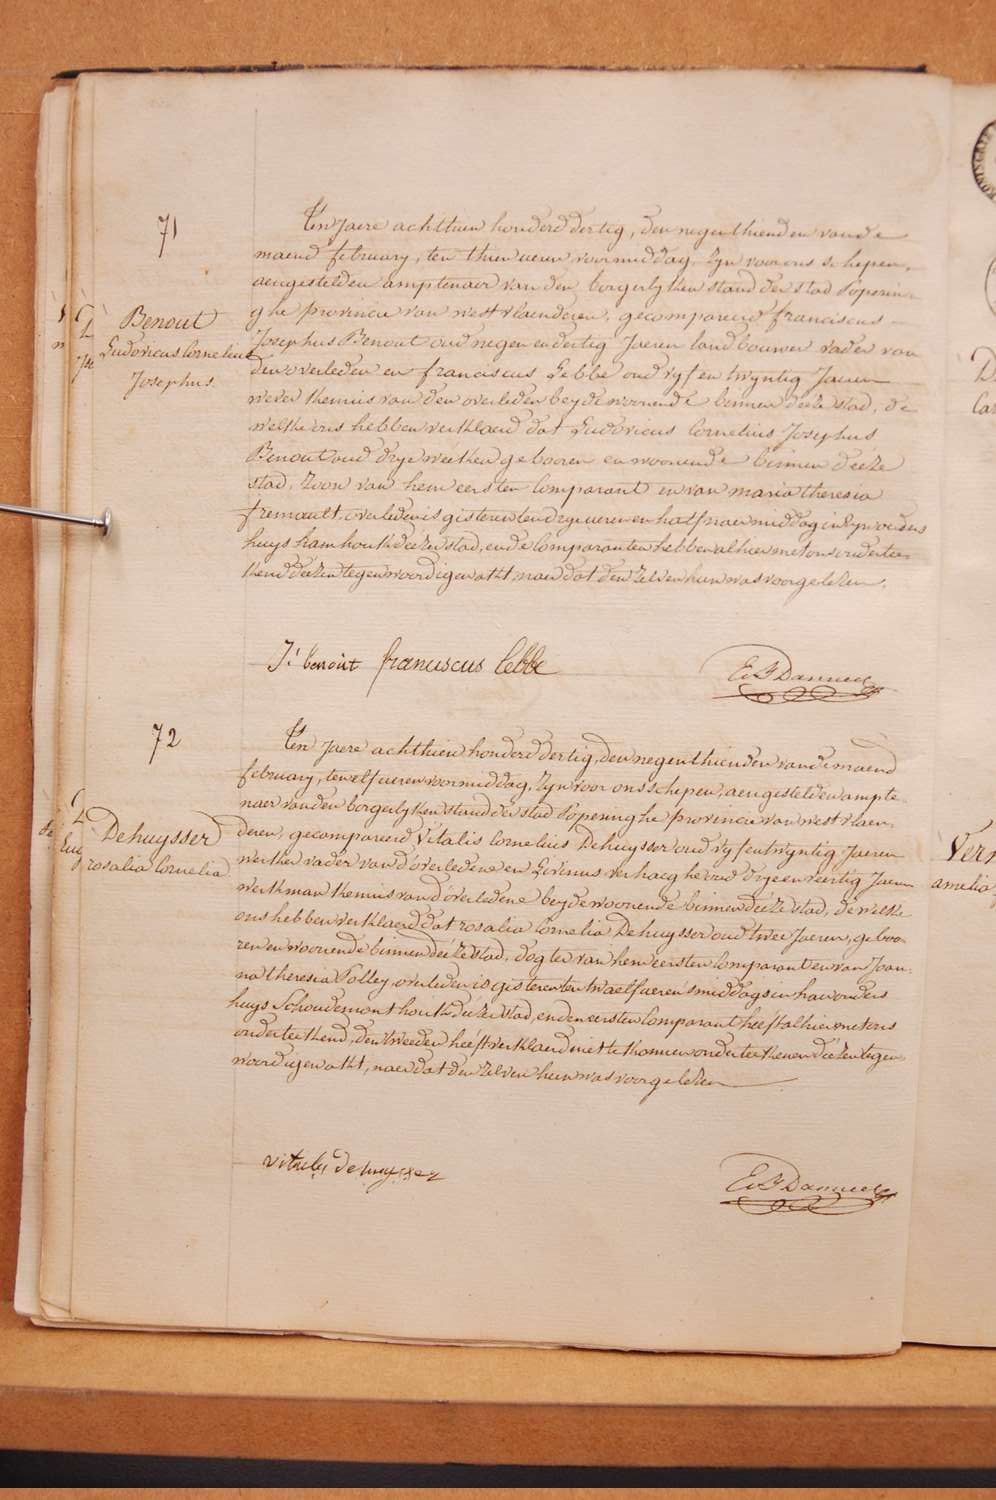 71
Benout
Ludovicus Cornelius
Josephus.
Ten Jaere achthien honderd dertig, den negenthienden van de
maend february, ten thien ueren voormiddag, Zyn voor ons schepen,
aengestelden amptenaer van den borgerlyken stand der stad Poperin-
ghe provincie van westvlaenderen, gecompareerd franciscus
Josephus Benout oud negen en dertig Jaeren landbouwer vader van
den overleden en franciscus Lebbe oud vyf en twyntig Jaeren
wever kennis van den overleden beyde woonende binnen deeze stad, de
welke ons hebben verklaerd dat Ludovicus Cornelius Josephus
Benout oud drye weeken gebooren en woonende binnen deeze
stad, Zoon van hem eersten Comparant en van maria theresia
fremault, overleden is gisteren ten drye ueren en half naermiddag in Zyn ouders
huys hamhouk deezer stad, en de Comparanten hebben alhier met ons ondertee-
kend deezen tegenwoordigen akt naer dat den Zelven hun was voorgelezen.
J: benoit franciscus lebbe
72
Dehuysser
rosalia Cornelia
Ten Jaere achthien honderd dertig, den negenthienden van de maend
february, ten elf ueren voormiddag, Zyn voor ons schepen, aengestelden ampte-
naer van den borgerlyken stand der stad Poperinghe provincie van westvlaen-
deren, gecompareerd Vitalis Cornelius Dehuysser oud vyf en twyntig Jaeren
werkman vader van d'overledene en Livinus verhaeghe oud drye en veertig Jaeren
werkman kennis van d'overledene beyde woonende binnen deeze stad, de welke
ons hebben verklaerd dat rosalia Cornelia Dehuysser oud twee Jaeren, geboo-
ren en woonende binnen deeze stad, dogter van hem eersten Comparant en van Joan-
na theresia Polley, overleden is gisteren ten twaelf ueren 'smiddags in haer ouders
huys Schoudemont houk deezer stad, en den eersten Comparant heeft alhier met ons
onderteekend, den tweeden heeft verklaerd niet te konnen onderteekenen deezen tegen-
woordigen akt, naer dat den Zelven hun was voorgelezen
vitalis dehuysser
Verm
amelia